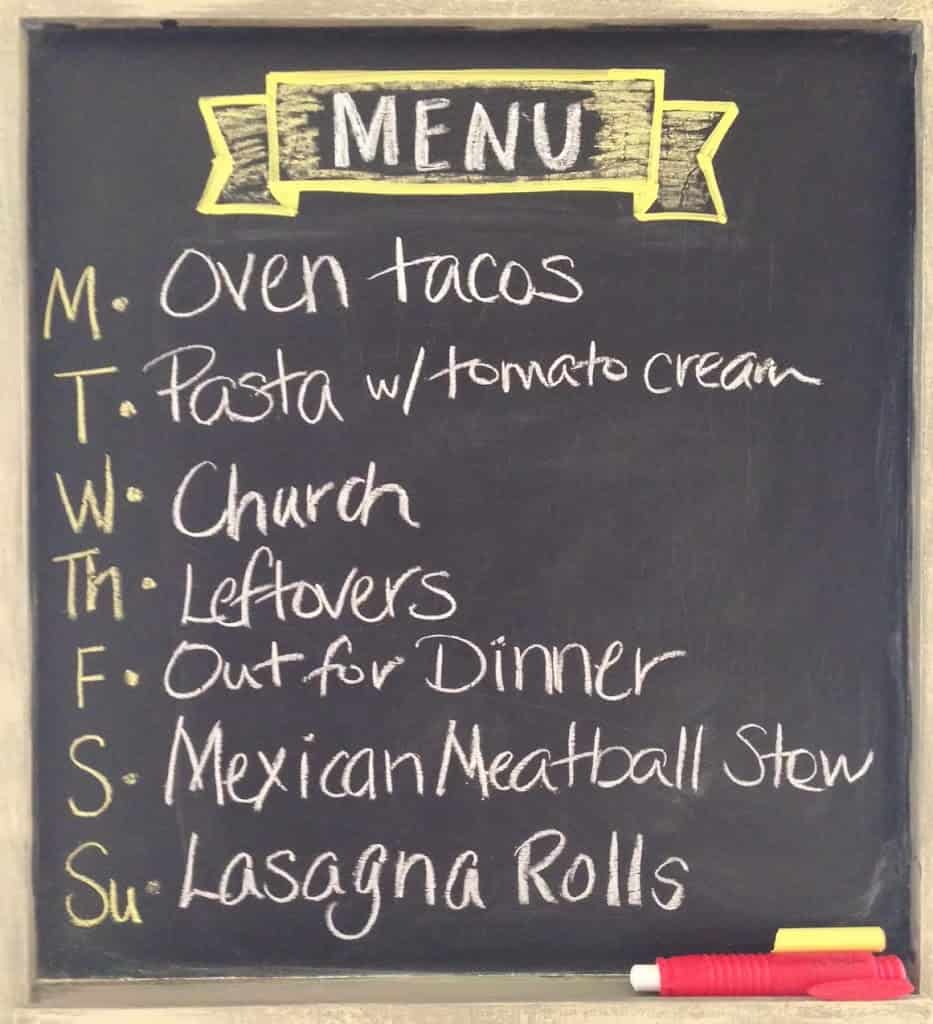 MENU
M. Oven tacos
T. Pasta w/ tomato cream
W. Church
Th. Leftovers
F. Out for Dinner
S. Mexican Meatball Stew
Su. Lasagna Rolls